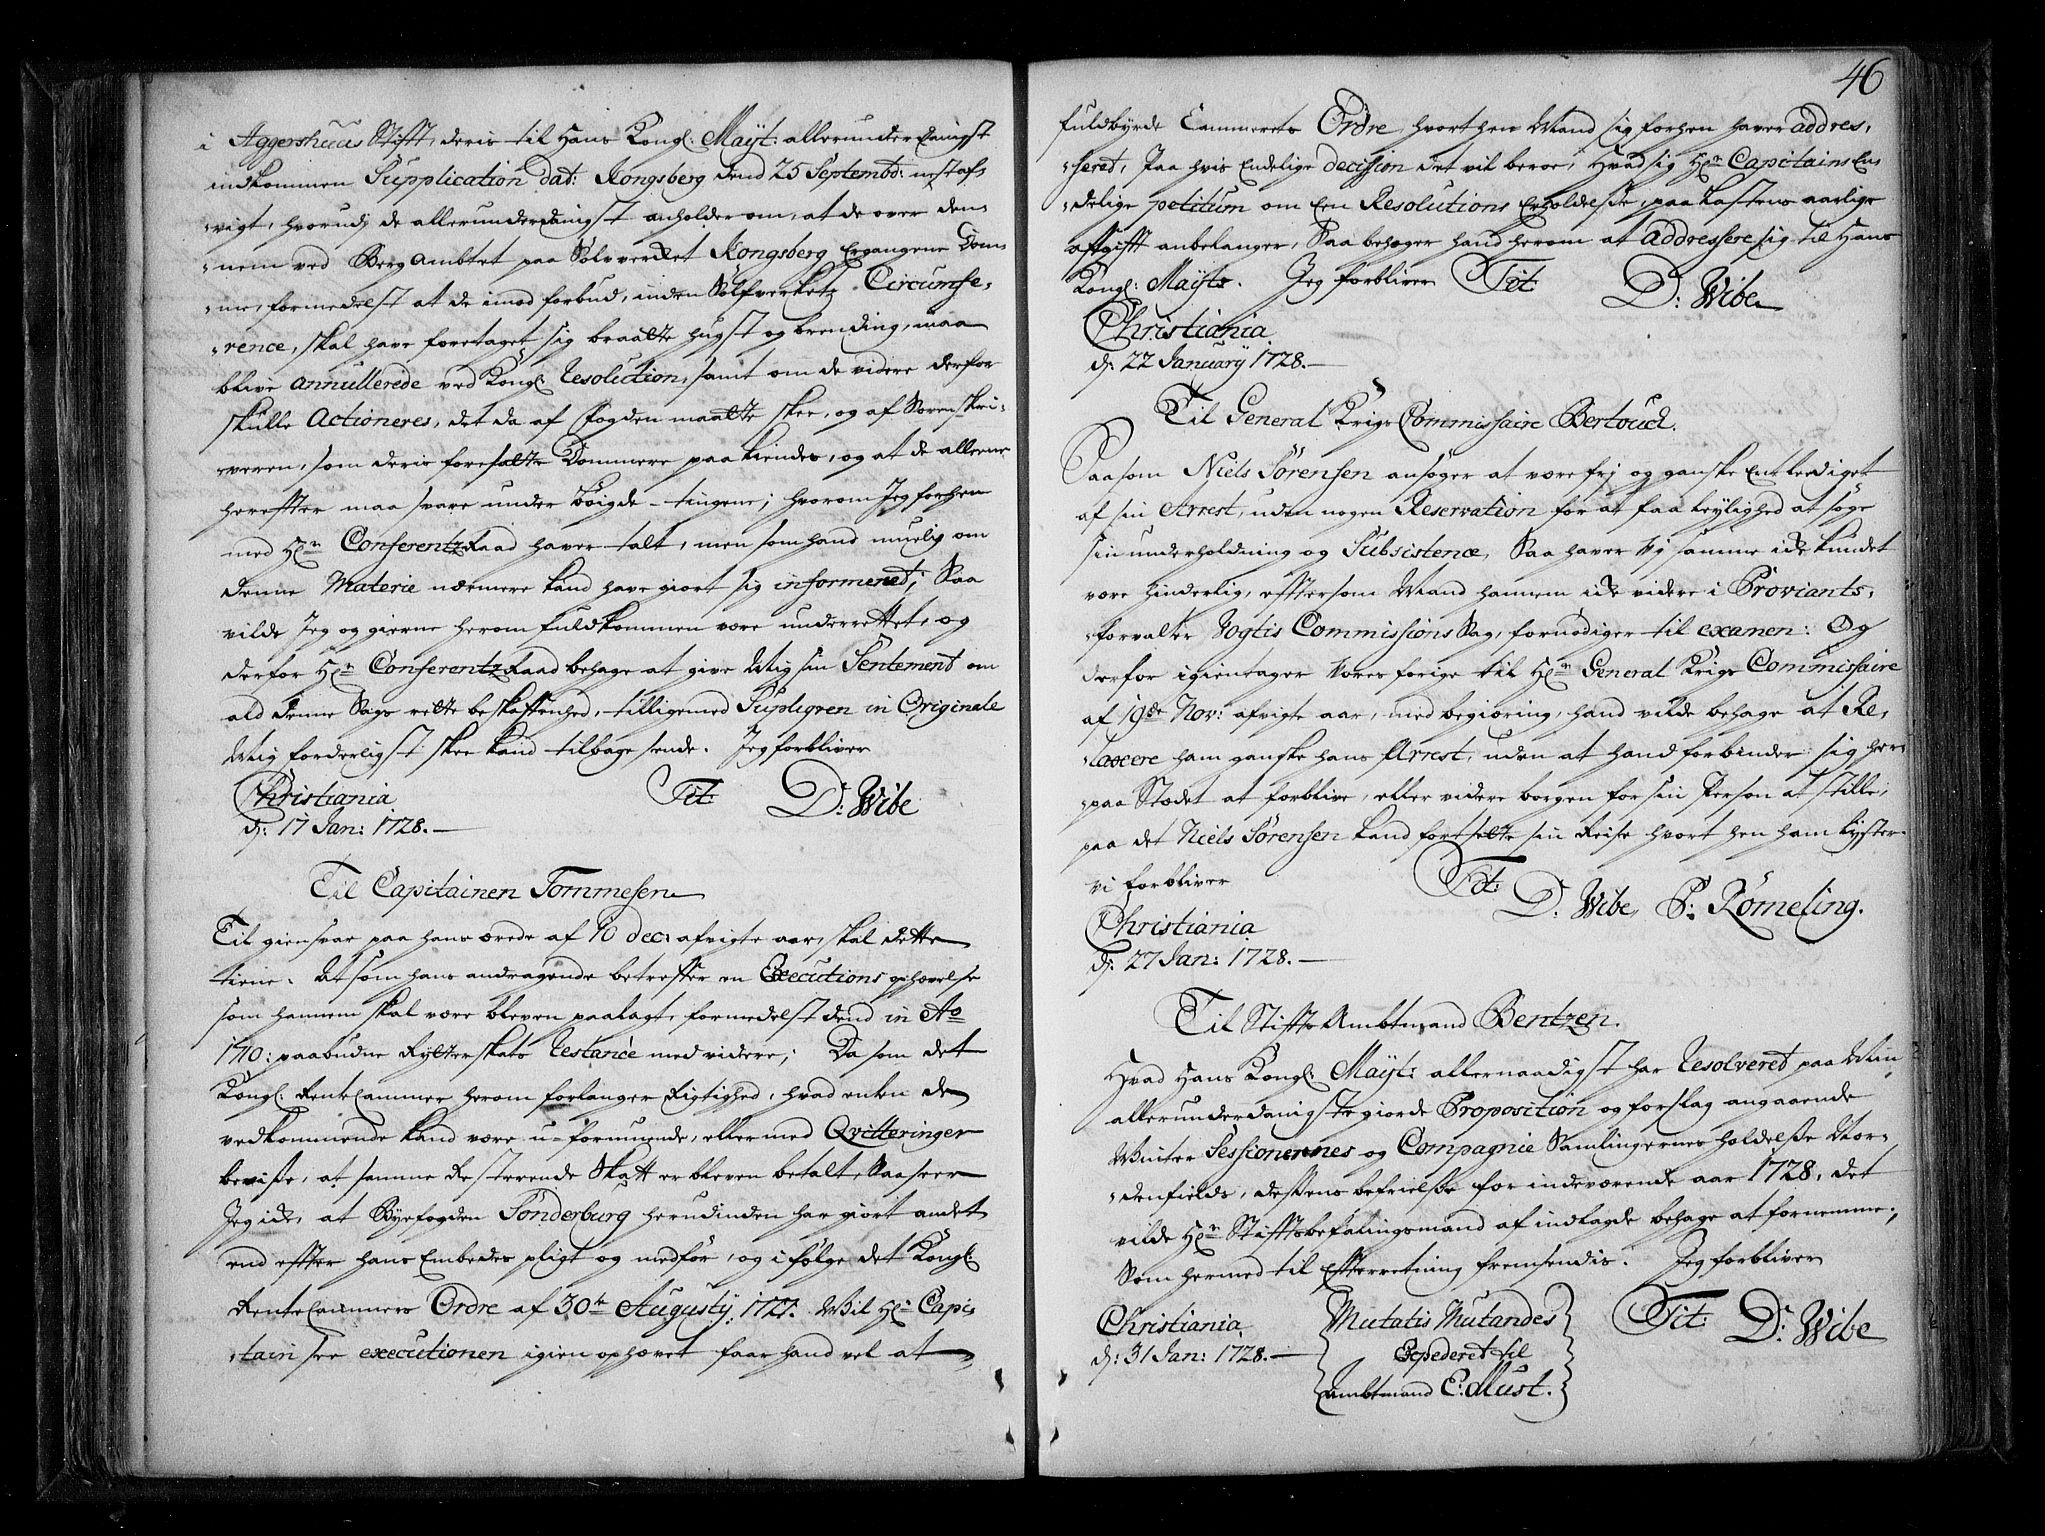 i Aggershuus Stifft, deris til Hans Kongl: Mayt: allerunderdanigst
indkommen Supplication dat: Kongsberg dend 25 Septembr: nest af-
vigt, hvorudj de allerunderdanigst anholder om, at de over den-
nem ved Berg Ambtet paa Sølvverket Kongsberg Ergangene Dom-
me, formedelst at de imod forbud, inden Sølfverketz Circumfe-
rence, skal have foretaget sig braatte hugst og brending, maa
blive annullerede ved Kongl: Resolution, samt om de videre derfor
skulle Actioneres, det da af Fogden maatte skee, og af Sorenskri-
veren, som deris foresatte Dommere paakiendes, og at de alleene
herefter maa svare under Bøigde-tingene; hvorom Jeg forhen
med Hr: ConferentzRaad haver talt, men som hand muelig om
denne Materie nærmere kand have giort sig informeret; Saa
vilde Jeg og gierne herom fuldkommen være underrettet, og
derfor Hr: ConferentzRaad behage at give Mig sin Sentement om
ald denne Sags rette beskaffenhed, tilligemed Supliqven in Originale
Mig forderligst skee kand tilbage sende. Jeg forbliver
Christiania Tit: D: Wibe
d: 17 Jan: 1728.
Til Capitainen Tommesen
Til giensvar paa hans ærede af 10 dec: afvigte aar, skal dette
tiene. At som hans andragende betreffer en Executions ophævelse
som hannem skal være bleven paalagt, formedelst dend in Ao
1710: paabudne Rytterskats Restance med videre; Da som det
Kongl: RenteCammer herom forlanger Rigtighed, hvad enten de
vedkommende kand være u-formuende, eller med Qvitteringer
beviise, at samme Resterende Skatt er bleven betalt, Saa seer
Jeg icke, at Byefogden Sønderburg herudinden har giort andet
end effter hans Embedes pligt og medfør, og i følge det Kongl:
RenteCammers Ordre af 30te Augustij 1727. Wil Hr: Capi-
tain see executionen igien ophævet faar hand vel at
46
fuldbyrde Cammerets Ordre, hvorthen Mand sig forhen haver addres-
seret, Paa hvis Endelige decission det vil beroe; Hvad sig Hr: Capitains En-
delige petitum om Een Resolutions Erholdelse, paa Kastens aarlige
afgifft anbelanger, Saa behager hand herom at addressere sig til Hans
Kongl: Mayts. Jeg forbliver Tit: D: Wibe
Christiania
d: 22 January 1728.
Til General Krigs Commissaire Bertouch.
Saasom Niels Sørensen ansøger at være frj og ganske Entlediget
af sin Arrest, uden nogen Reservation for at faa leylighed at søge
sin underholdning og Subsistence, Saa haver Vj samme icke kundet
være hinderlig, efftersom Mand hannem icke videre i Proviants-
forvalter Vogtis Commissions Sag, fornødiger til examen: Og
derfor igientager Vores forige til Hr: General Krigs Commissaire
af 19de Nov: afvigte aar, med begiæring, hand vilde behage at Re-
laxere ham ganske hans Arrest, uden at hand forbinder sig her-
paa Stædet at forblive, eller videre borgen for sin Person at stille;
paa det Niels Sørensen kand fortsette sin Reise hvort hen ham lyster.
vi forbliver Tit: D: Wibe, P: Rømeling.
Christiania
d: 27 Jan: 1728.
Til Stiffts Ambtmand Bentzen.
Hvad Hans Kongl: Mayt: allernaadigst har Resolveret paa Min
allerunderdanigste giorde Proposition og forslag angaaende
Winter Sessionernes og Compagnie Samlingernes holdelse Nor-
denfields, dessens befrielse for indeværende aar 1728, det
vilde Hr: Stifftsbefalingsmand af indlagde behage at fornemme,
Som hermed til Efterretning fremsendis. Jeg forbliver
Christiania Tit: D: Wibe
d: 31 Jan: 1728.
Mutatis Mutandes
Expederet til
Ambtmand E: Must.